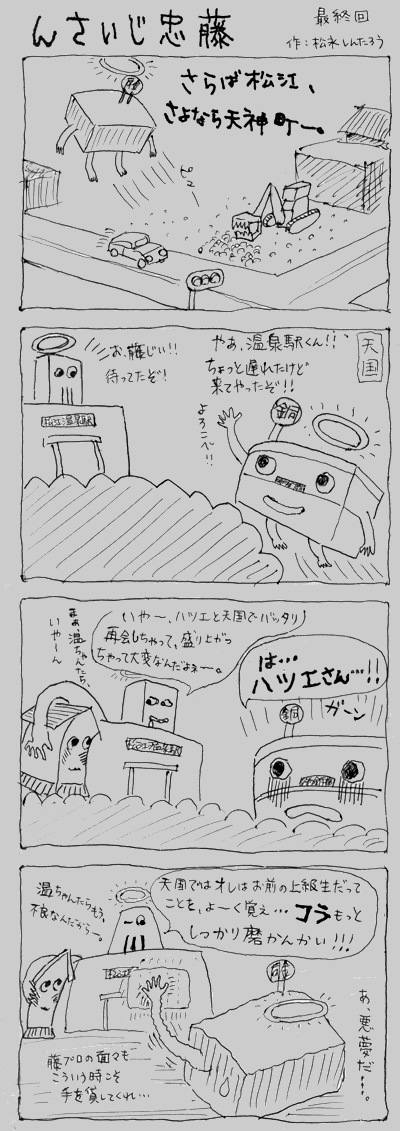 んさいじ忠藤
最終回
作：松永しんたろう
さらば松江、
さよなら天神町ー。
ピュー
天国
やあ、温泉駅くん！！
ちょっと遅れたけど
来てやったぞ！！
よろこべ！！
お、藤じい！！
待ってたぞ！
温泉駅
いやー、ハツエと天国でバッタリ
再会しちゃって、盛り上がっ
ちゃって大変なんだよねー。
まぁ、温ちゃんたら、
いやーん
は…
ハツエさん…！！
ガーン
天国ではオレはお前の上級生だって
ことを、よーく覚え…コラもっと
しっかり磨かんかい！！！
温ちゃんたらもう、
不良なんだからー。
あ、悪夢だ…。
藤プロの面々も
こういう時こそ
手を貸してくれ…